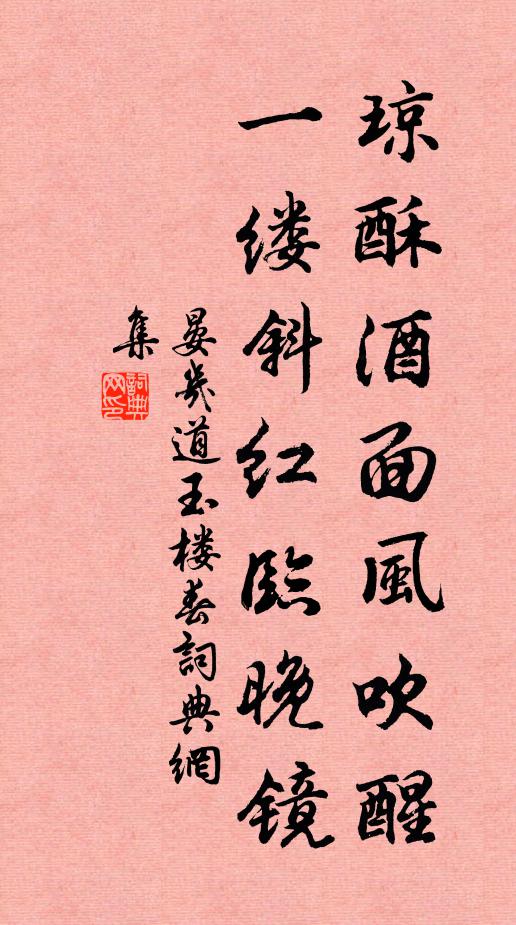 琼酥酒面風吹醒
一缕斜红臨晚镜
晏幾道玉楼春詞典網
集
詞典网印